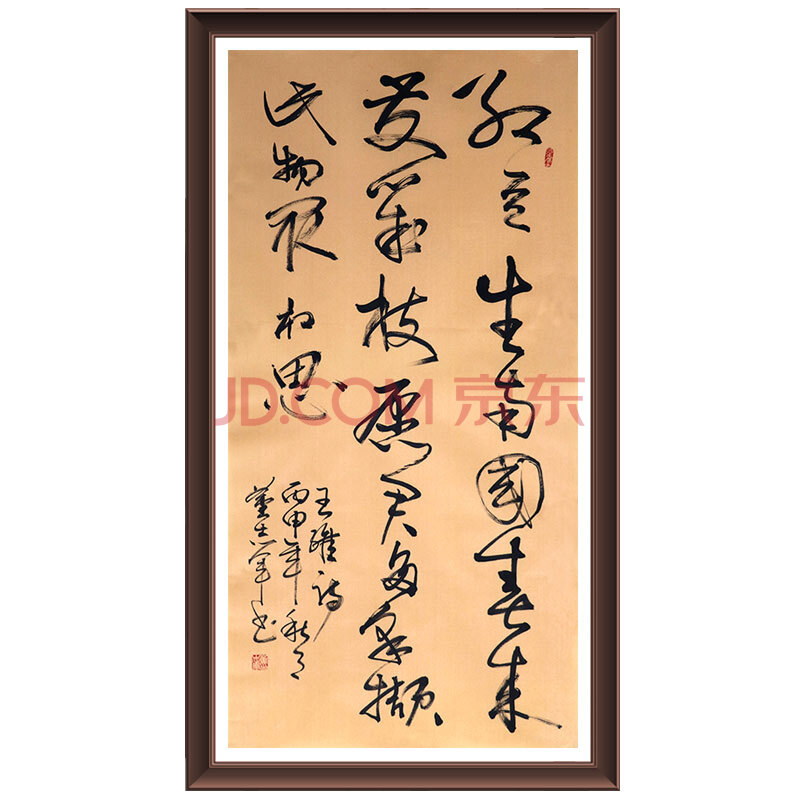 红豆生南國春来
发幾枝愿君多采撷
此物最相思
王维诗
丙申年秋月
董志军书
JD.COM 京东